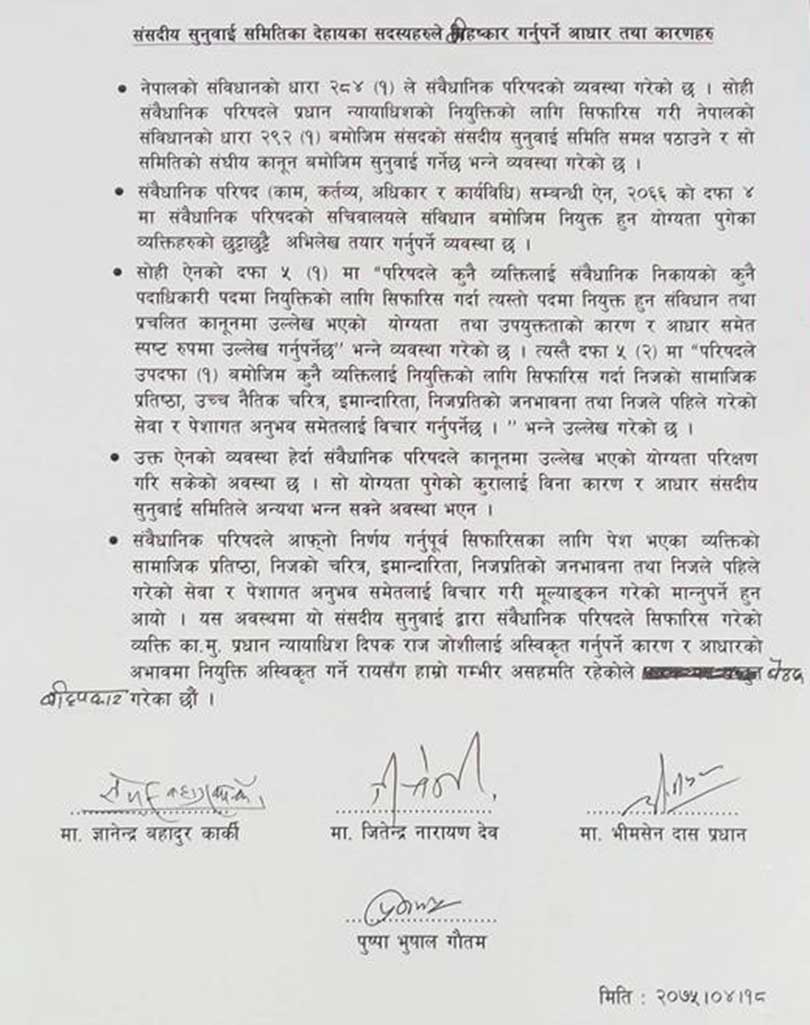 संसदीय सुनुवाई समितिका देहायका सदस्यहरुले बहिष्कार गर्नुपर्ने आधार तथा कारणहरु
• नेपालको संविधानको धारा २८४ (१) ले संवैधानिक परिषदको व्यवस्था गरेको छ । सोही
संवैधानिक परिषदले प्रधान न्यायाधिशको नियुक्तिको लागि सिफारिस गरी नेपालको
संविधानको धारा २९२ (१) बमोजिम संसदको संसदीय सुनुवाई समिति समक्ष पठाउने र सो
समितिको संघीय कानून बमोजिम सुनुवाई गर्नेछ भन्ने व्यवस्था गरेको छ ।
• संवैधानिक परिषद (काम, कर्तव्य, अधिकार र कार्यविधि) सम्बन्धी ऐन, २०६६ को दफा ४
मा संवैधानिक परिषदको सचिवालयले संविधान बमोजिम नियुक्त हुन योग्यता पुगेका
व्यक्तिहरुको छुट्टाछुट्टै अभिलेख तयार गर्नुपर्ने व्यवस्था छ ।
• सोही ऐनको दफा ५ (१) मा "परिषदले कुनै व्यक्तिलाई संवैधानिक निकायको कुनै
पदाधिकारी पदमा नियुक्तिको लागि सिफारिस गर्दा त्यस्तो पदमा नियुक्त हुन संविधान तथा
प्रचलित कानूनमा उल्लेख भएको योग्यता तथा उपयुक्तताको कारण र आधार समेत
स्पष्ट रुपमा उल्लेख गर्नुपर्नेछ" भन्ने व्यवस्था गरेको छ । त्यस्तै दफा ५ (२) मा "परिषदले
उपदफा (१) बमोजिम कुनै व्यक्तिलाई नियुक्तिको लागि सिफारिस गर्दा निजको सामाजिक
प्रतिष्ठा, उच्च नैतिक चरित्र, इमान्दारिता, निजप्रतिको जनभावना तथा निजले पहिले गरेको
सेवा र पेशागत अनुभव समेतलाई विचार गर्नुपर्नेछ । " भन्ने उल्लेख गरेको छ ।
• उक्त ऐनको व्यवस्था हेर्दा संवैधानिक परिषदले कानूनमा उल्लेख भएको योग्यता परिक्षण
गरि सकेको अवस्था छ । सो योग्यता पुगेको कुरालाई विना कारण र आधार संसदीय
सुनुवाई समितिले अन्यथा भन्न सक्ने अवस्था भएन ।
• संवैधानिक परिषदले आफ्नो निर्णय गर्नुपूर्व सिफारिसका लागि पेश भएका व्यक्तिको
सामाजिक प्रतिष्ठा, निजको चरित्र, इमान्दारिता, निजप्रतिको जनभावना तथा निजले पहिले
गरेको सेवा र पेशागत अनुभव समेतलाई विचार गरी मूल्याङ्कन गरेको मान्नुपर्ने हुन
आयो । यस अवस्थमा यो संसदीय सुनुवाई द्वारा संवैधानिक परिषदले सिफारिस गरेको
व्यक्ति का.मु. प्रधान न्यायाधिश दिपक राज जोशीलाई अस्विकृत गर्नुपर्ने कारण र आधारको
अभावमा नियुक्ति अस्विकृत गर्ने रायसँग हाम्रो गम्भीर असहमति रहेकोले बैठक
बहिष्कार गरेका छौं ।
मा. ज्ञानेन्द्र बहादुर कार्की मा. जितेन्द्र नारायण देव मा. भीमसेन दास प्रधान
पुष्पा भुषाल गौतम
मिति : २०७५।०४।१८